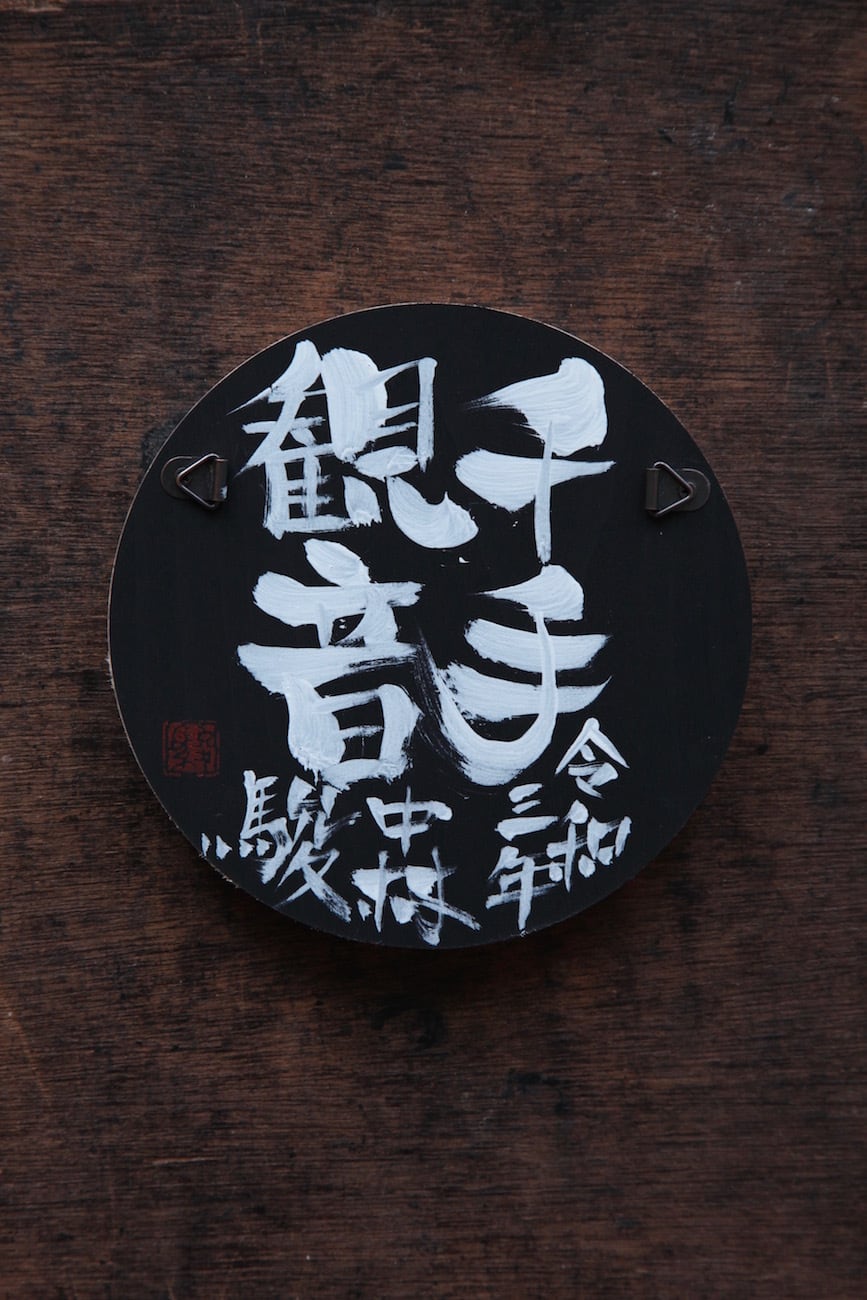 千手
観音
令和
三年
中村
駿